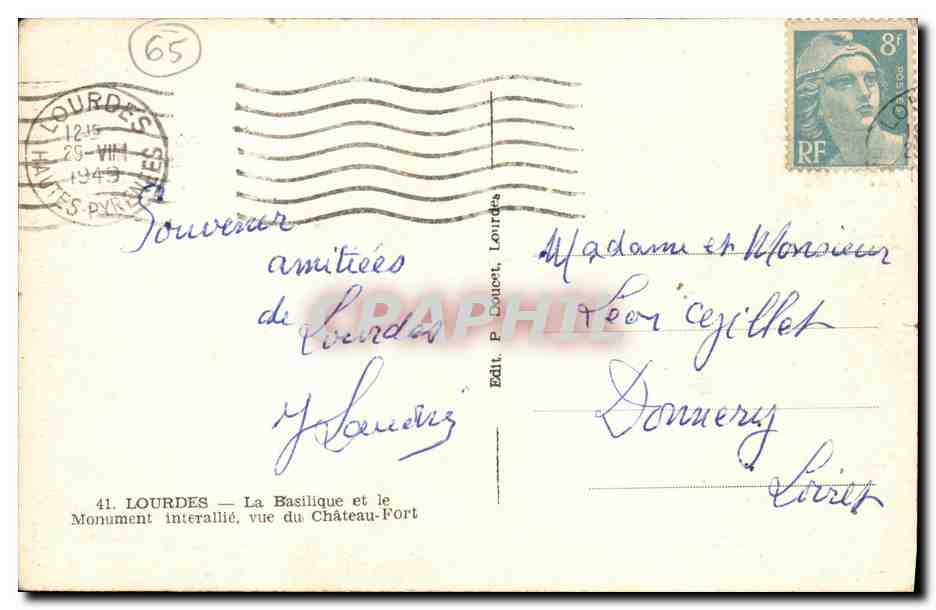 65
LOURDES
12 15
29-VIII
1949
HAUTES-PYRENEES
8f
POSTES
RF
Souvenir
amitiées
de Lourdes
Madame et Monsieur
Léon
Donnery
Loiret
CPAPHIL
Edit. P Doucet, Lourdes
41. LOURDES — La Basilique et le
Monument interallié, vue du Château-Fort